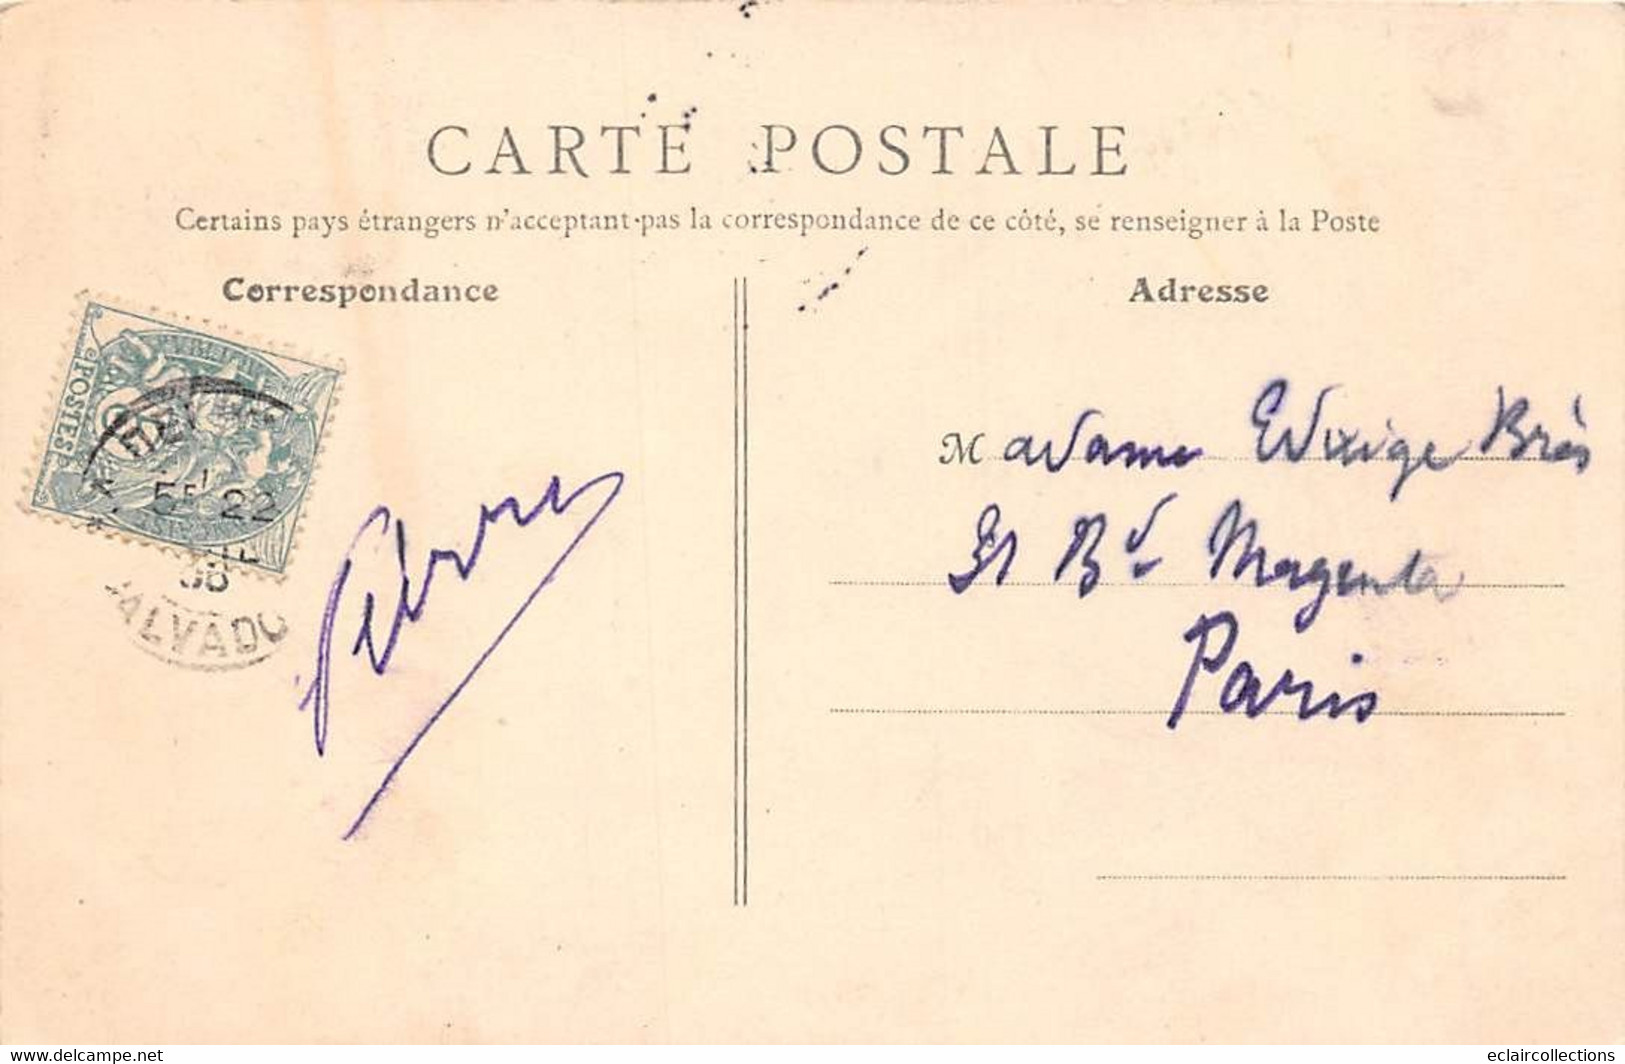 CARTE POSTALE
Certains pays étrangers n'acceptant pas la correspondance de ce côté, se renseigner à la Poste
Correspondance
Adresse
POSTES
5E 22
06
CALVADO
Madame Edwige Brès
Bd Magenta
Paris
eclaircollections